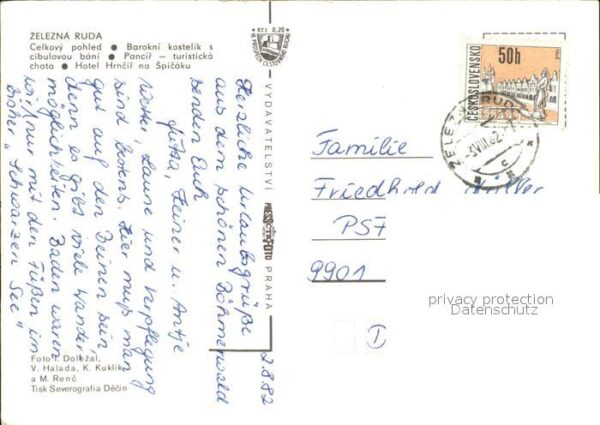 ŽELEZNÁ RUDA
Celkový pohled ● Barokní kostelík s
cibulovou bání ● Pancíř — turistická
chata ● Hotel Hrnčíř na Špičáku
Kčs 0,20
VYDAVATELSTVÍ
PRESSFOTO
PRAHA
Herzliche Urlaubsgrüße
aus dem schönen Böhmerwald
senden Euch
Jutta, Heiner u. Antje
Wetter, Laune und Verpflegung
sind bestens. Hier muß man
gut auf den Beinen sein,
denn es gibt viele Wander-
möglichkeiten. Baden waren
wir nur mit den Füßen im
bisher „Schwarzen See"
2.8.82
Foto J. Doležal,
V. Halada, K. Kuklík
a M. Renč
Tisk Severografia Děčín
50h
ČESKOSLOVENSKO
ŽELEZNÁ RUDA
Familie
Friedhold Müller
PSF
9901
D
privacy protection
Datenschutz